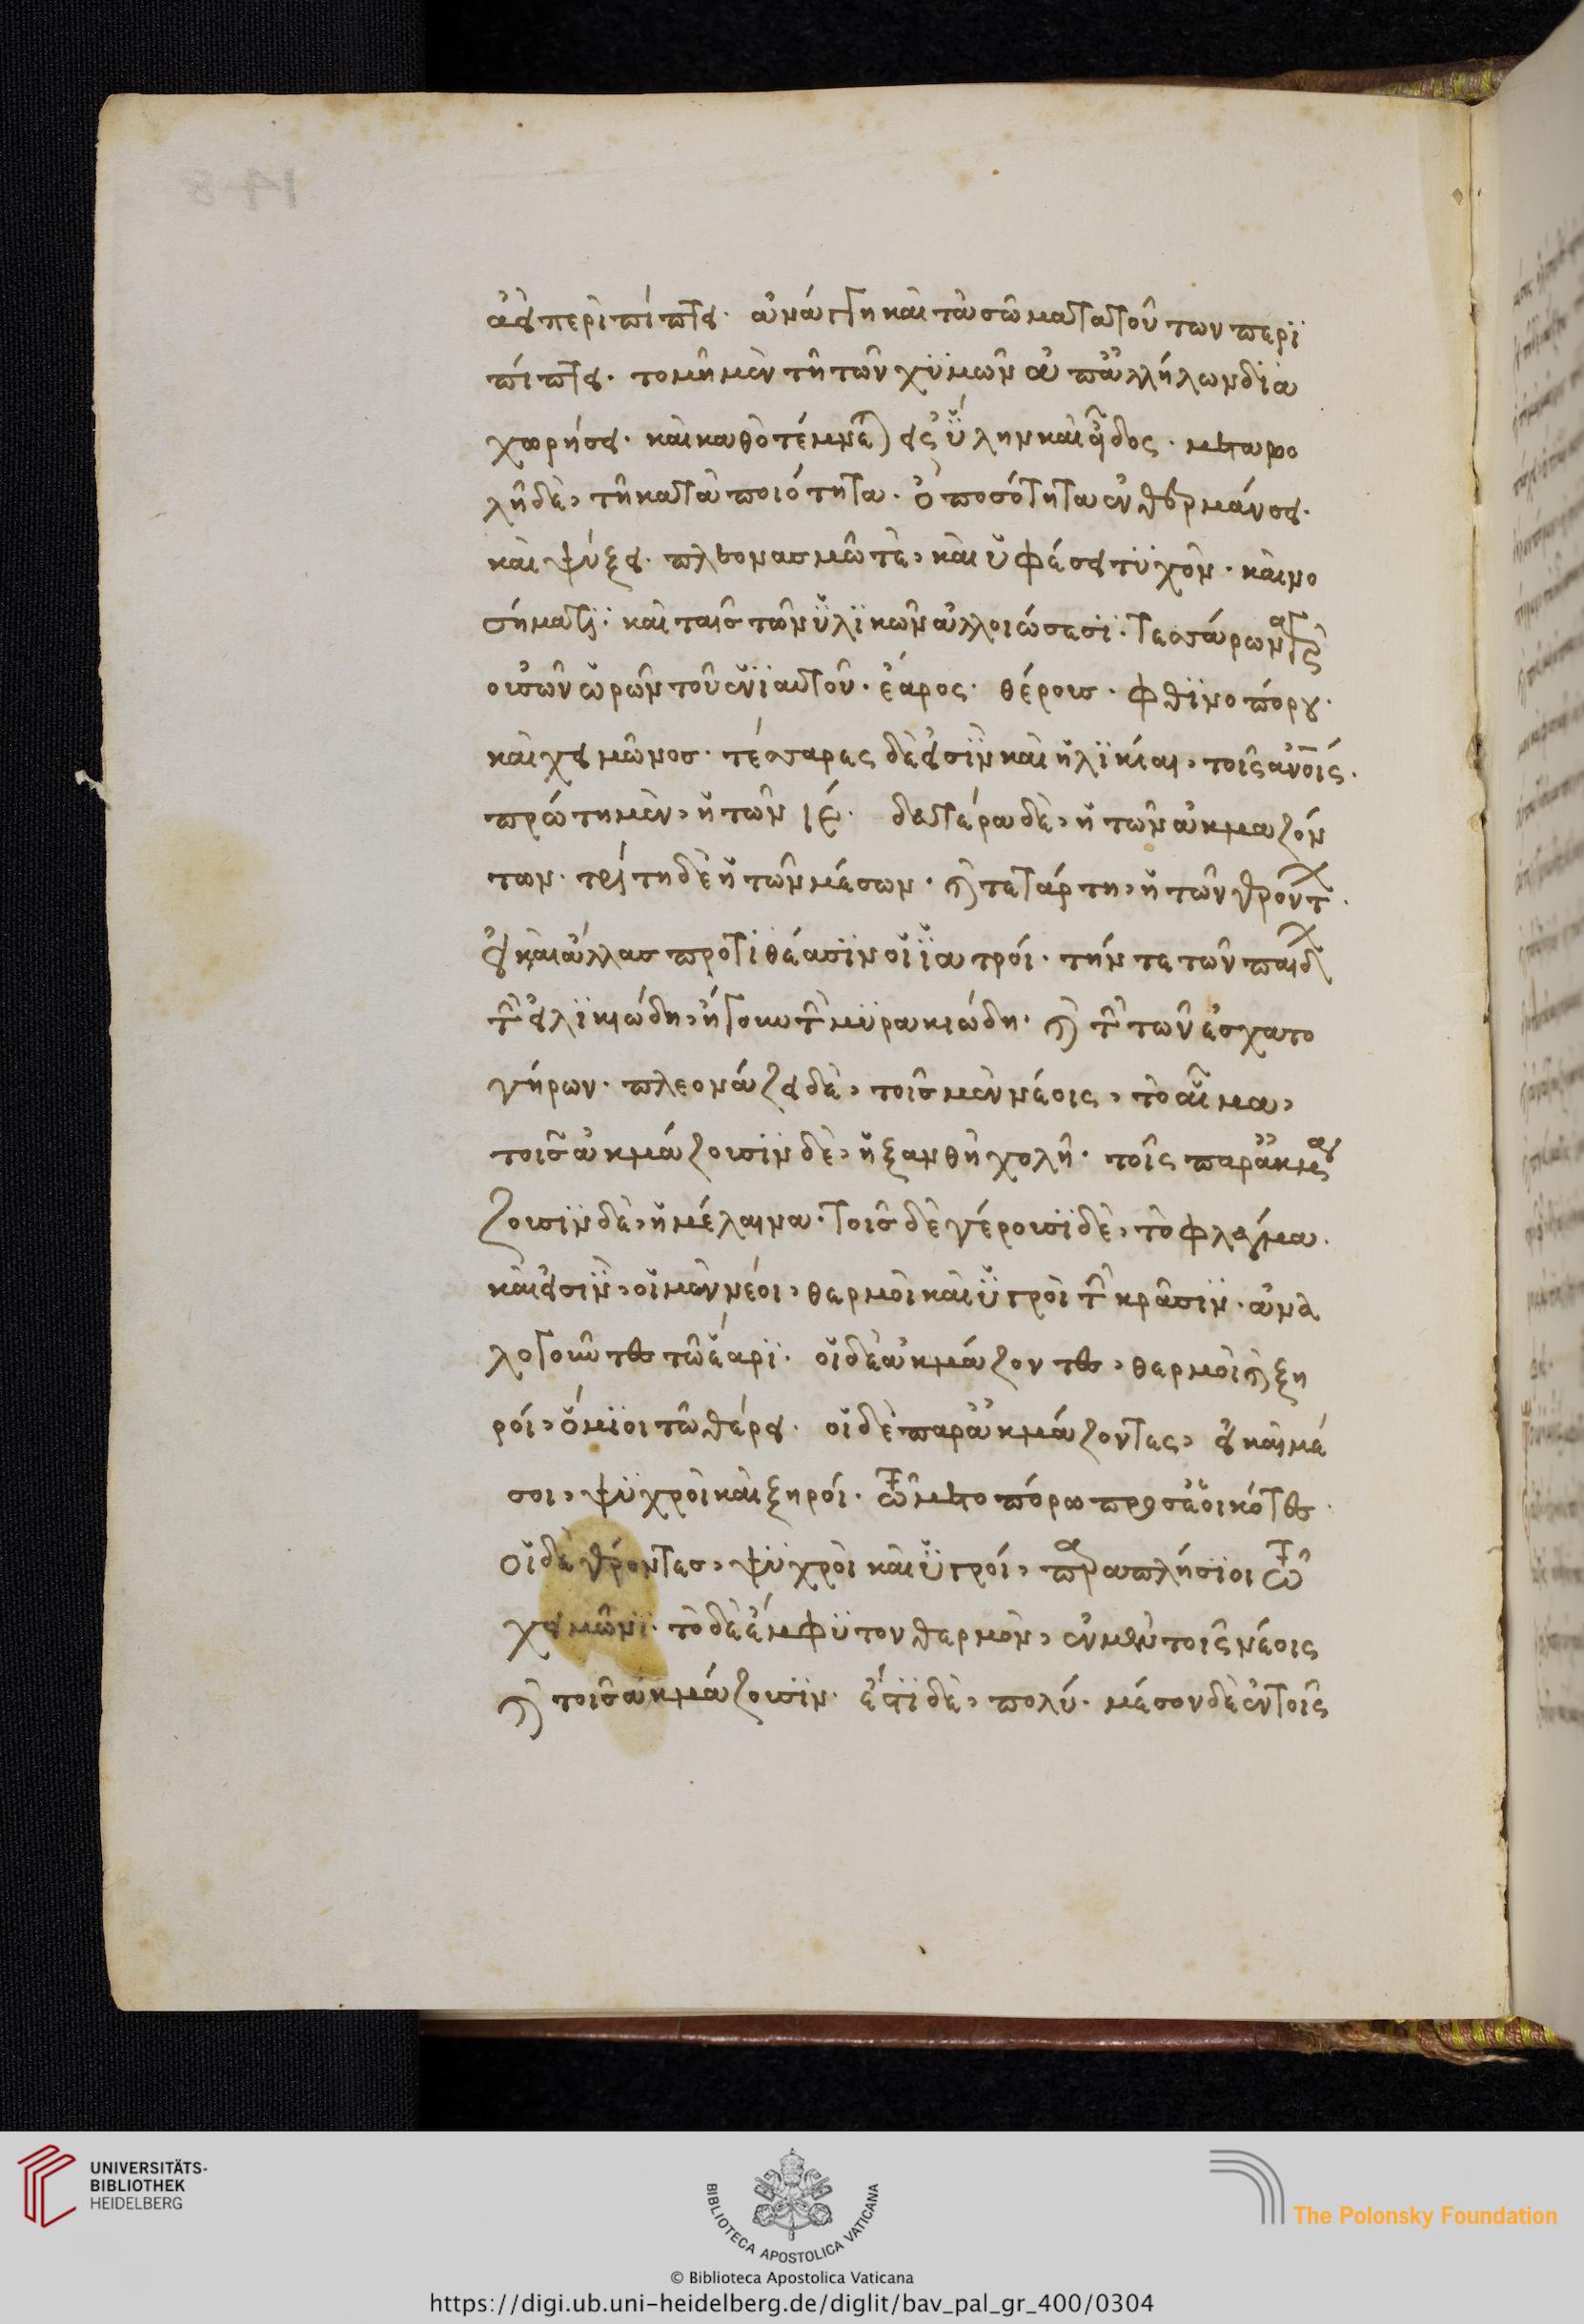 αἷς περιπίπτει. ἀνάγκη καὶ τὰ σώματα τούτων περι
πίπτει. τομῇ μὲν τῇ τῶν χυμῶν ἀπ' ἀλλήλων δια
χωρήσει. καὶ καθὸ τέμνεται εἰς ὕλην καὶ εἶδος. μεταβο
λῇ δὲ, τῇ κατὰ ποιότητα. ὁ ποσότητα ἐν θερμάνσει.
καὶ ψύξει. πλεονασμῶ τὲ, καὶ ὑφέσει τυχὸν. καὶ νο
σήματι. καὶ ταῖς τῶν ὑλικῶν ἀλλοιώσεσι. τεσσάρων
οὐσῶν ὡρῶν τοῦ ἐνιαυτοῦ. ἔαρος. θέρους. φθινοπόρου.
καὶ χειμῶνος. τέσσαρες δὲ εἰσὶν καὶ ἡλικίαι, τοῖς ἀνοῖς.
πρώτη μὲν, ἡ τῶν δευτέρα δὲ, ἡ τῶν ἀκμαζόν
των. τρίτη δὲ ἡ τῶν μέσων. καὶ τετάρτη, ἡ τῶν γερόντ.
εἰ καὶ ἄλλας προτιθέασιν οἱ ἰατροί. τήν τε τῶν παιδ
τὴν ἑλικιώδη, ἤγουν τὴν μυρακιώδη. καὶ τὴν τῶν ἐσχατο
γήρων. πλεονάζει δὲ, τοῖς μὲν νέοις, τὸ αἷμα,
τοῖς ἀκμάζουσιν δὲ, ἡ ξανθὴ χολὴ. τοῖς παρακμα
ζουσιν δὲ, ἡ μέλαινα. τοῖς δὲ γέρουσι δὲ, τὸ φλέγμα.
καὶ εἰσὶν, οἱ μὲν νέοι, θερμοὶ καὶ ὑγροὶ τὴν κρᾶσιν. ἀνα
λογοῦντες τῶ ἔαρι. οἱ δὲ ἀκμάζοντες, θερμοὶ καὶ ξη
ροί, ὅμιοι τῶ θέρει. οἱ δὲ παρακμάζοντες, εἰ καὶ μέ
σοι, ψυχροὶ καὶ ξηροί. τῶ μετοπόρω προσεοικότες.
οἱ δὲ γέροντες, ψυχροὶ καὶ ὑγροί, παραπλήσιοι τῶ
χειμῶνι. τὸ δὲ ἔμφυτον θερμὸν, ἐν μὲν τοῖς νέοις
καὶ τοῖς ἀκμάζουσιν. ἐστὶ δὲ, πολύ. μέσον δὲ ἐν τοῖς
UNIVERSITÄTS-
BIBLIOTHEK
HEIDELBERG
BIBLIOTECA APOSTOLICA VATICANA
The Polonsky Foundation
© Biblioteca Apostolica Vaticana
https://digi.ub.uni-heidelberg.de/diglit/bav_pal_gr_400/0304